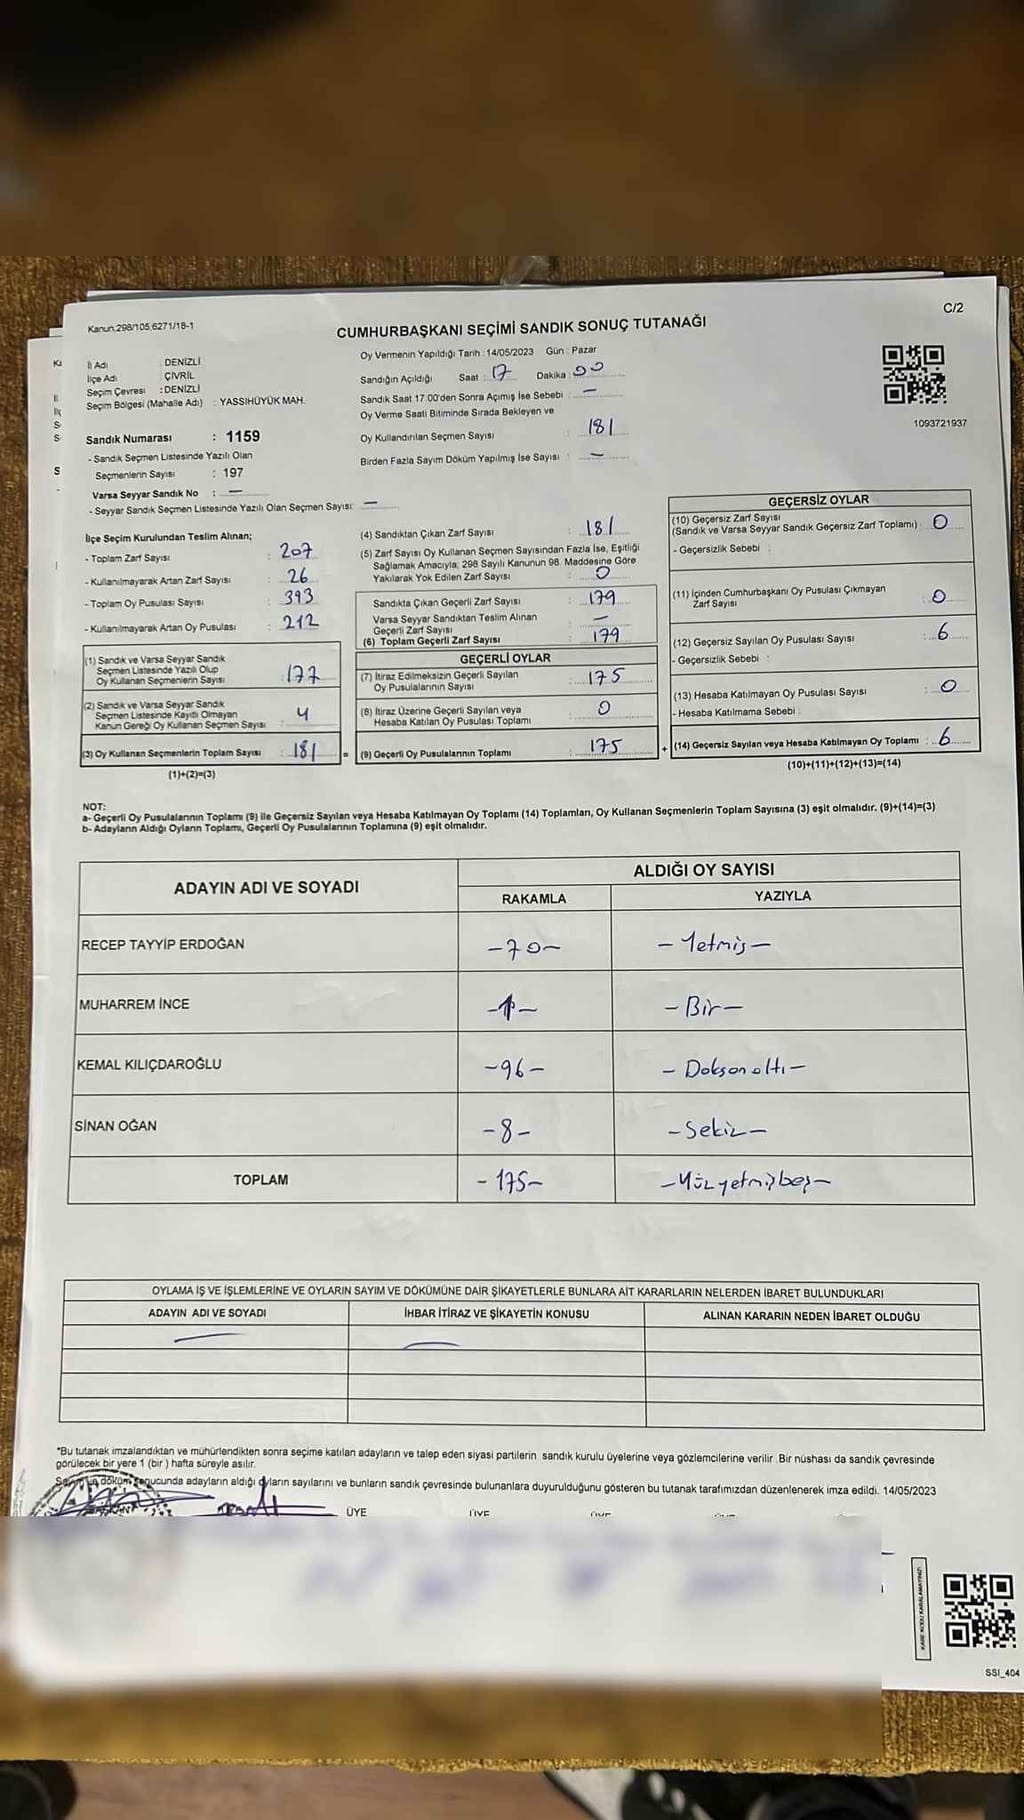 Kanun:298/105;6271/18-1
C/2
CUMHURBAŞKANI SEÇİMİ SANDIK SONUÇ TUTANAĞI
İl Adı : DENİZLİ
İlçe Adı : ÇİVRİL
Seçim Çevresi : DENİZLİ
Seçim Bölgesi (Mahalle Adı) : YASSIHÜYÜK MAH.
Sandık Numarası : 1159
- Sandık Seçmen Listesinde Yazılı Olan
Seçmenlerin Sayısı : 197
Varsa Seyyar Sandık No : —
- Seyyar Sandık Seçmen Listesinde Yazılı Olan Seçmen Sayısı: —
Oy Vermenin Yapıldığı Tarih : 14/05/2023 Gün : Pazar
Sandığın Açıldığı Saat : 17 Dakika : 00
Sandık Saat 17:00'den Sonra Açımış İse Sebebi : —
Oy Verme Saati Bitiminde Sırada Bekleyen ve
Oy Kullandırılan Seçmen Sayısı : 181
Birden Fazla Sayım Döküm Yapılmış İse Sayısı : —
1093721937
İlçe Seçim Kurulundan Teslim Alınan;
- Toplam Zarf Sayısı : 207
- Kullanılmayarak Artan Zarf Sayısı : 26
- Toplam Oy Pusulası Sayısı : 393
- Kullanılmayarak Artan Oy Pusulası : 212
(1) Sandık ve Varsa Seyyar Sandık
Seçmen Listesinde Yazılı Olup
Oy Kullanan Seçmenlerin Sayısı : 177
(2) Sandık ve Varsa Seyyar Sandık
Seçmen Listesinde Kaydı Olmayan
Kanun Gereği Oy Kullanan Seçmen Sayısı : 4
(3) Oy Kullanan Seçmenlerin Toplam Sayısı : 181
(1)+(2)=(3)
(4) Sandıktan Çıkan Zarf Sayısı : 181
(5) Zarf Sayısı Oy Kullanan Seçmen Sayısından Fazla İse, Eşitliği
Sağlamak Amacıyla; 298 Sayılı Kanunun 98. Maddesine Göre
Yakılarak Yok Edilen Zarf Sayısı : 0
Sandıkta Çıkan Geçerli Zarf Sayısı : 179
Varsa Seyyar Sandıktan Teslim Alınan
Geçerli Zarf Sayısı : —
(6) Toplam Geçerli Zarf Sayısı : 179
GEÇERLİ OYLAR
(7) İtiraz Edilmeksizin Geçerli Sayılan
Oy Pusulalarının Sayısı : 175
(8) İtiraz Üzerine Geçerli Sayılan veya
Hesaba Katılan Oy Pusulası Toplamı : 0
= (9) Geçerli Oy Pusulalarının Toplamı : 175
GEÇERSİZ OYLAR
(10) Geçersiz Zarf Sayısı
(Sandık ve Varsa Seyyar Sandık Geçersiz Zarf Toplamı) : 0
- Geçersizlik Sebebi :
(11) İçinden Cumhurbaşkanı Oy Pusulası Çıkmayan
Zarf Sayısı : 0
(12) Geçersiz Sayılan Oy Pusulası Sayısı : 6
- Geçersizlik Sebebi :
(13) Hesaba Katılmayan Oy Pusulası Sayısı : 0
- Hesaba Katılmama Sebebi :
+ (14) Geçersiz Sayılan veya Hesaba Katılmayan Oy Toplamı : 6
(10)+(11)+(12)+(13)=(14)
NOT:
a- Geçerli Oy Pusulalarının Toplamı (9) ile Geçersiz Sayılan veya Hesaba Katılmayan Oy Toplamı (14) Toplamları, Oy Kullanan Seçmenlerin Toplam Sayısına (3) eşit olmalıdır. (9)+(14)=(3)
b- Adayların Aldığı Oyların Toplamı, Geçerli Oy Pusulalarının Toplamına (9) eşit olmalıdır.
ADAYIN ADI VE SOYADI ALDIĞI OY SAYISI
RAKAMLA YAZIYLA
RECEP TAYYİP ERDOĞAN -70- -Yetmiş-
MUHARREM İNCE -1- -Bir-
KEMAL KILIÇDAROĞLU -96- -Doksanaltı-
SİNAN OĞAN -8- -Sekiz-
TOPLAM -175- -Yüzyetmişbeş-
OYLAMA İŞ VE İŞLEMLERİNE VE OYLARIN SAYIM VE DÖKÜMÜNE DAİR ŞİKAYETLERLE BUNLARA AİT KARARLARIN NELERDEN İBARET BULUNDUKLARI
ADAYIN ADI VE SOYADI İHBAR İTİRAZ VE ŞİKAYETİN KONUSU ALINAN KARARIN NEDEN İBARET OLDUĞU
*Bu tutanak imzalandıktan ve mühürlendikten sonra seçime katılan adayların ve talep eden siyasi partilerin sandık kurulu üyelerine veya gözlemcilerine verilir. Bir nüshası da sandık çevresinde
görülecek bir yere 1 (bir ) hafta süreyle asılır.
Sayım ve döküm sonucunda adayların aldığı oyların sayılarını ve bunların sandık çevresinde bulunanlara duyurulduğunu gösteren bu tutanak tarafımızdan düzenlenerek imza edildi. 14/05/2023
BAŞKAN ÜYE ÜYE ÜYE
SSI_404